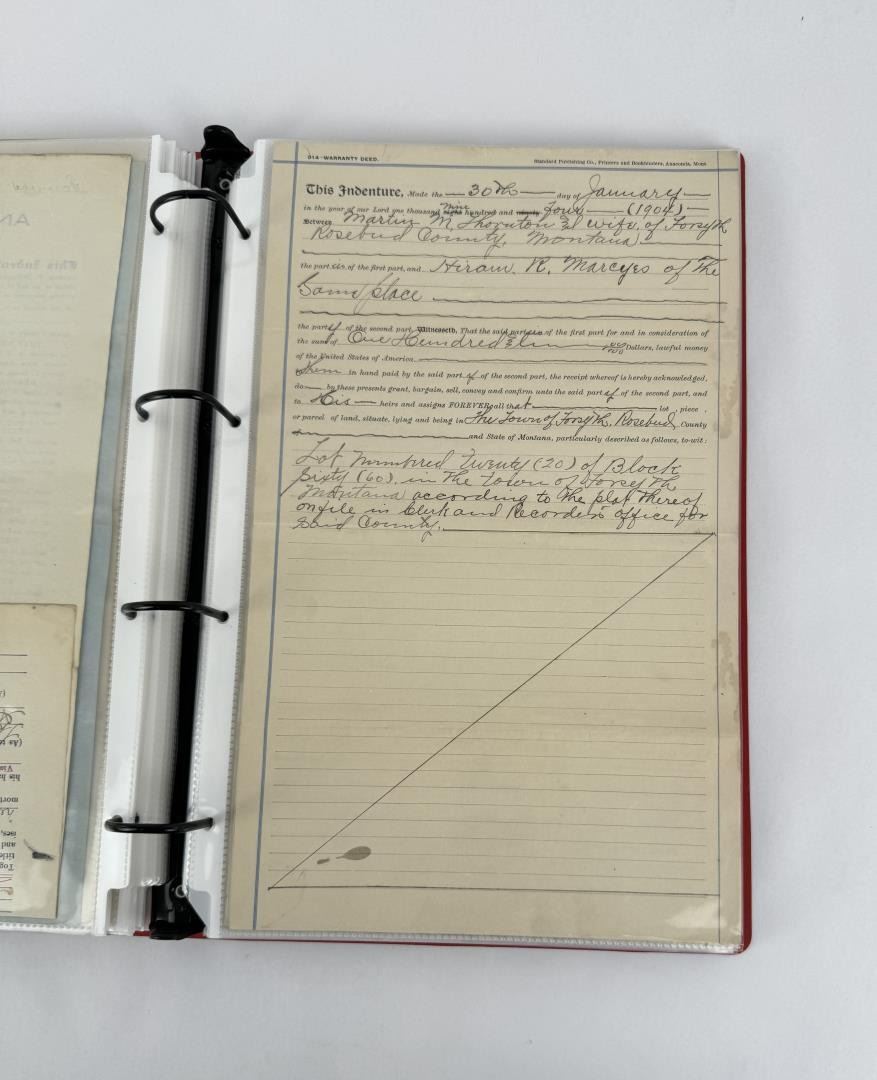 914-WARRANTY DEED. Standard Publishing Co., Printers and Bookbinders, Anaconda, Mont.
This Indenture, Made the 30th day of January
in the year of our Lord one thousand eight nine hundred and ninety Four (1904)
Between Martin M. Thornton & wife, of Forsyth
Rosebud County, Montana
the parties of the first part, and Hiram R. Marcyes of The
Same place
the party of the second part, Witnesseth, That the said parties of the first part for and in consideration of
the sum of One Hundred & 00/100 Dollars, lawful money
of the United States of America.
to them in hand paid by the said party of the second part, the receipt whereof is hereby acknowledged,
do by these presents grant, bargain, sell, convey and confirm unto the said party of the second part, and
to His heirs and assigns FOREVER, all that lot, piece,
or parcel of land, situate, lying and being in The Town of Forsyth, Rosebud County
and State of Montana, particularly described as follows, to-wit:
Lot Numbred Twenty (20) of Block
Sixty (60), in The town of Forsyth
Montana according to the plat thereof
on file in Clerk and Recorders office for
Said County.
AN
This Indent
(As to
his ha
mort
ises,
and
title
Tog